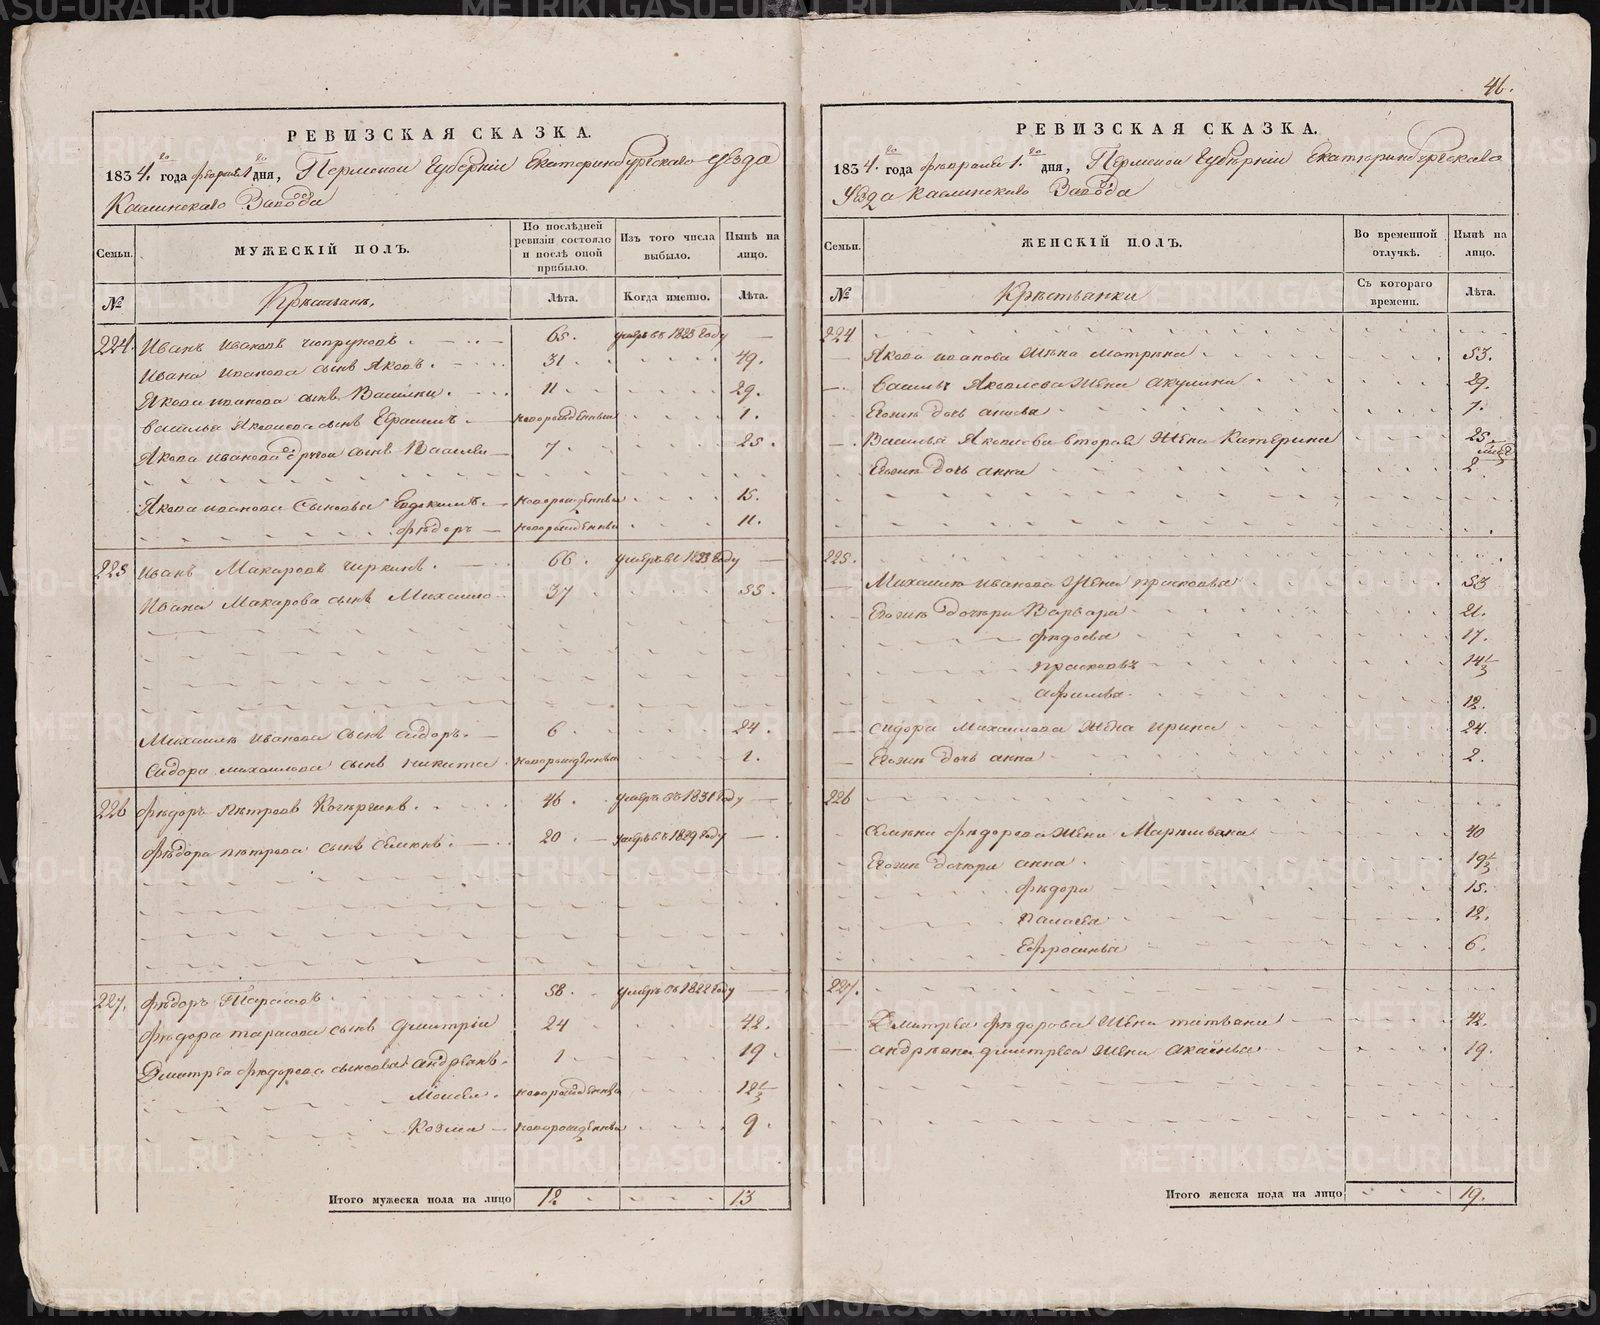 46.
РЕВИЗСКАЯ СКАЗКА.
1834. го года февраля 1 го дня, Пермской Губерніи Екатеринбургскаго уезда
Каслинскаго Завода
Семьи.
МУЖЕСКІЙ ПОЛЪ.
По послѣдней ревизіи состояло и послѣ оной прибыло.
Изъ того числа выбыло.
Нынѣ на лицо.
№
Крестьянъ,
Лѣта.
Когда именно.
Лѣта.
224. Иванъ Ивановъ 65. умеръ въ 1823 году —
Ивана Иванова сынъ Яковъ. 31 49.
Якова Иванова сынъ Василий. 11 29.
Василья Яковлева сынъ Ефраимъ. новорожденныи 1.
Якова Иванова другои сынъ Василеи 7 25.
Якова Иванова сыновья Евдокимъ. новорожденныи 15.
Федоръ новорожденныи 11.
225 Иванъ Макаровъ Чиркинъ. 66. умеръ въ 1823 году —
Ивана Макарова сынъ Михаило 37 55.
Михаила Иванова сынъ Сидоръ. 6 24.
Сидора Михаилова сынъ Никита новорожденныи 1.
226 Федоръ Петровъ Кочергинъ. 46. умеръ въ 1831 году —
Федора Петрова сынъ Семенъ. 20. умеръ въ 1829 году —
227. Федоръ Тарасовъ 58. умеръ въ 1822 году —
Федора Тарасова сынъ Дмитріи 24 42.
Дмитрея Федорова сыновья Андреанъ. 1 19.
Моисеи. новорожденныи 12 1/3
Козма новорожденныи 9.
Итого мужеска пола на лицо 12 13
РЕВИЗСКАЯ СКАЗКА.
1834. го года февраля 1. го дня, Пермской Губерніи Екатеринбургскаго
Уезда Каслинскаго Завода
Семьи.
ЖЕНСКІЙ ПОЛЪ.
Во временной отлучкѣ.
Нынѣ на лицо.
№
Крестьянки
Съ котораго времени.
Лѣта.
224
Якова Иванова жена Матрена 53.
Василья Яковлева жена Акулина 29.
Евоже дочь Анисья 7.
Василья Яковлева вторая жена Катерина 25.
Евоже дочь Анна 2
225.
Михаила Иванова жена Прасковья 53
Евоже дочери Варвара 21.
Федосья 17.
Прасковья 14 1/3
Афимья 12.
Сидора Михаилова жена Ирина 24.
Евоже дочь Анна 2.
226
Семена Федорова жена Мартимьяна 40
Евоже дочери Анна 19 1/3
Федора 15.
Паласья 12.
Ефросинья 6.
227.
Дмитрея Федорова жена Татьяна 42.
Андреяна Дмитрева жена Аксинья 19.
Итого женска пола на лицо 19.